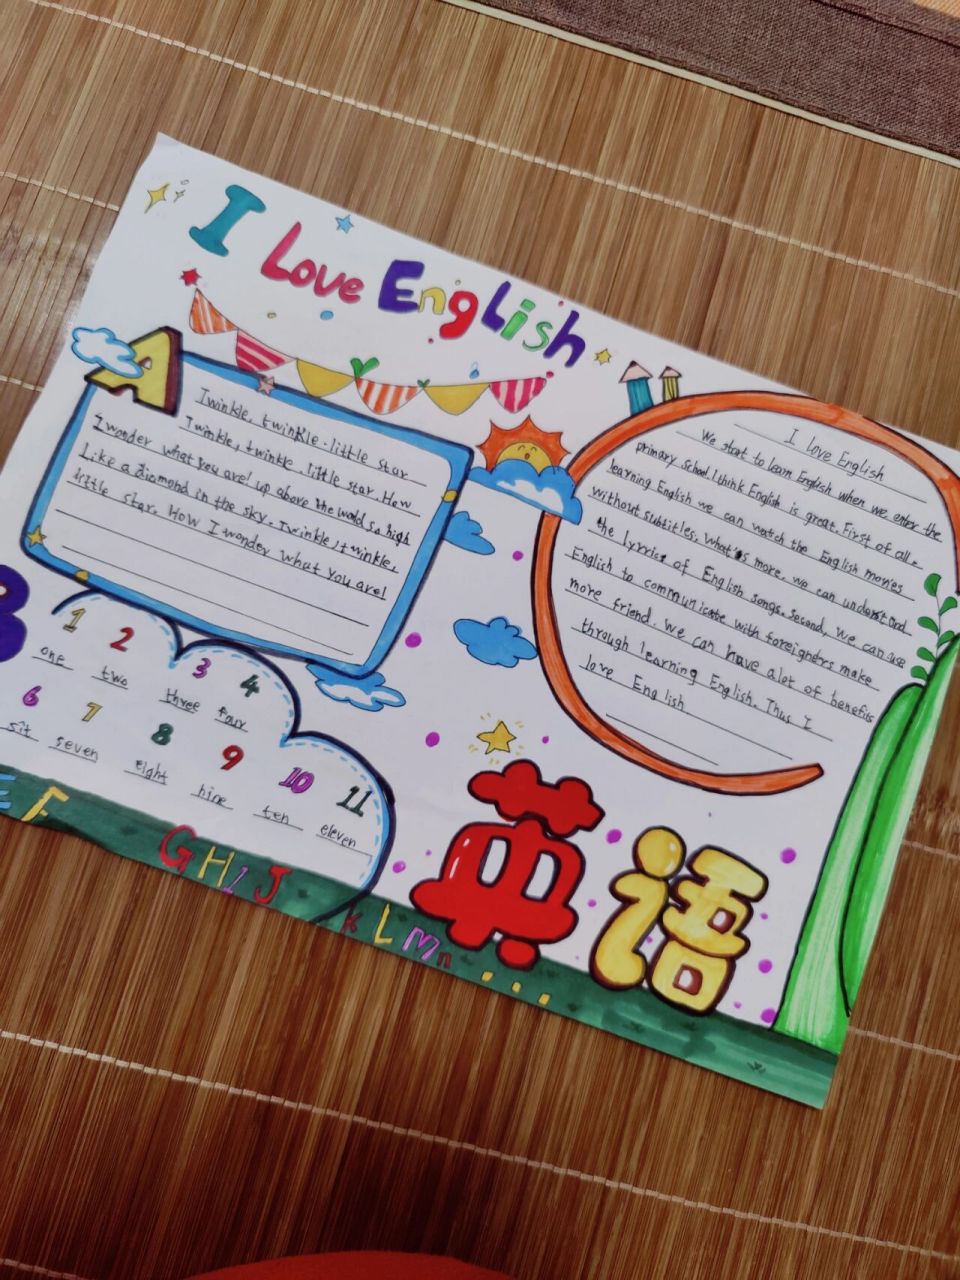 I Love English
A
Twinkle, twinkle - little star
Twinkle, twinkle little star. How
I wonder what you are! up above the world so high
Like a diamond in the sky. Twinkle, twinkle,
little star. How I wonder what you are!
I love English
We start to learn English when we enter the
primary school. I think English is great. First of all,
learning English we can watch the English movies
without subtitles. What's more, we can understand
the lyrics of English songs. second, we can use
English to communicate with foreigners make
more friend. we can have a lot of benefits
through learning English. Thus I
love English
B
1 2 3 4
one two three four
6 7 8 9 10 11
sit seven eight nine ten eleven
E F G H I J K L M n ...
英语